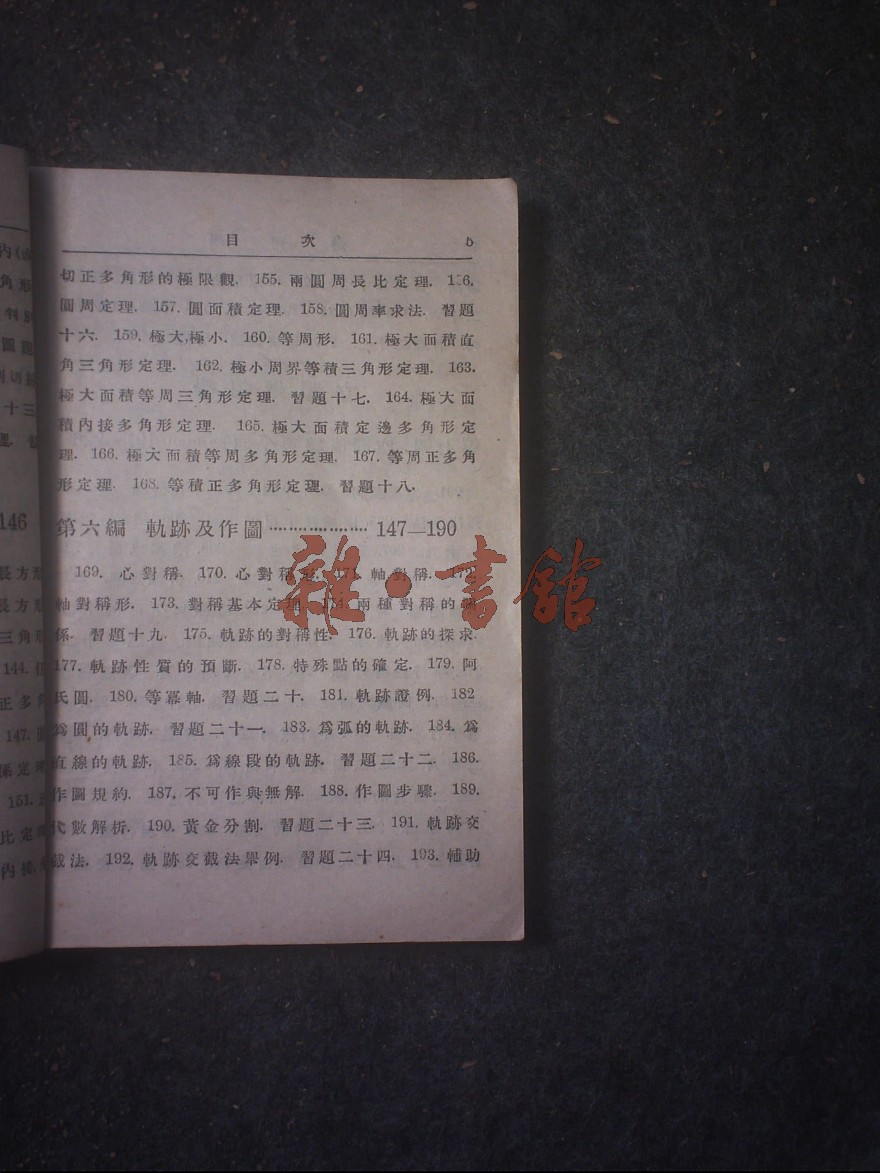 目 次 5
切正多角形的極限觀. 155. 兩圓周長比定理. 156.
圓周定理. 157. 圓面積定理. 158. 圓周率求法. 習題
十六. 159. 極大,極小. 160. 等周形. 161. 極大面積直
角三角形定理. 162. 極小周界等積三角形定理. 163.
極大面積等周三角形定理. 習題十七. 164. 極大面
積內接多角形定理. 165. 極大面積定邊多角形定
理. 166. 極大面積等周多角形定理. 167. 等周正多角
形定理. 168. 等積正多角形定理. 習題十八.
第六編 軌跡及作圖 ………………… 147—190
169. 心對稱. 170. 心對稱形. 171. 軸對稱. 172.
軸對稱形. 173. 對稱基本定理. 174. 兩種對稱的
係. 習題十九. 175. 軌跡的對稱性. 176. 軌跡的探求.
177. 軌跡性質的預斷. 178. 特殊點的確定. 179. 阿
氏圓. 180. 等冪軸. 習題二十. 181. 軌跡證例. 182
爲圓的軌跡. 習題二十一. 183. 爲弧的軌跡. 184. 爲
直線的軌跡. 185. 爲線段的軌跡. 習題二十二. 186.
作圖規約. 187. 不可作與無解. 188. 作圖步驟. 189.
代數解析. 190. 黃金分割. 習題二十三. 191. 軌跡交
截法. 192. 軌跡交截法舉例. 習題二十四. 193. 輔助
146
長方形
長方
三角形
144.
正多角
147.
係定理
151.
比定理
內接
雜·書館